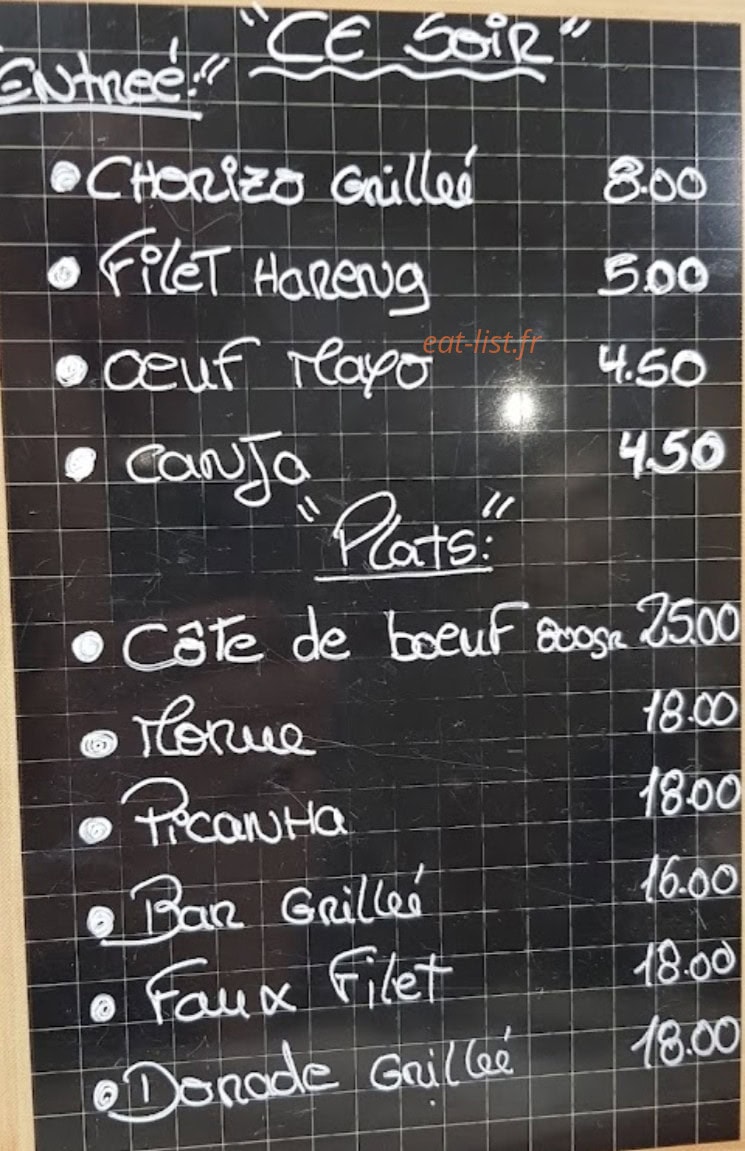 "CE SOIR"
ENtReé:"
CHORIZO GRILLEé 8.00
FILET HARENG 5.00
eat-list.fr
OEUF MAYO 4.50
CANJA 4.50
"Plats:"
Côte de boeuf 800gr 25.00
MORUE 18.00
PICANHA 18.00
BAR GRILLEé 16.00
FAUX FILET 18.00
DORADE GRILLEé 18.00